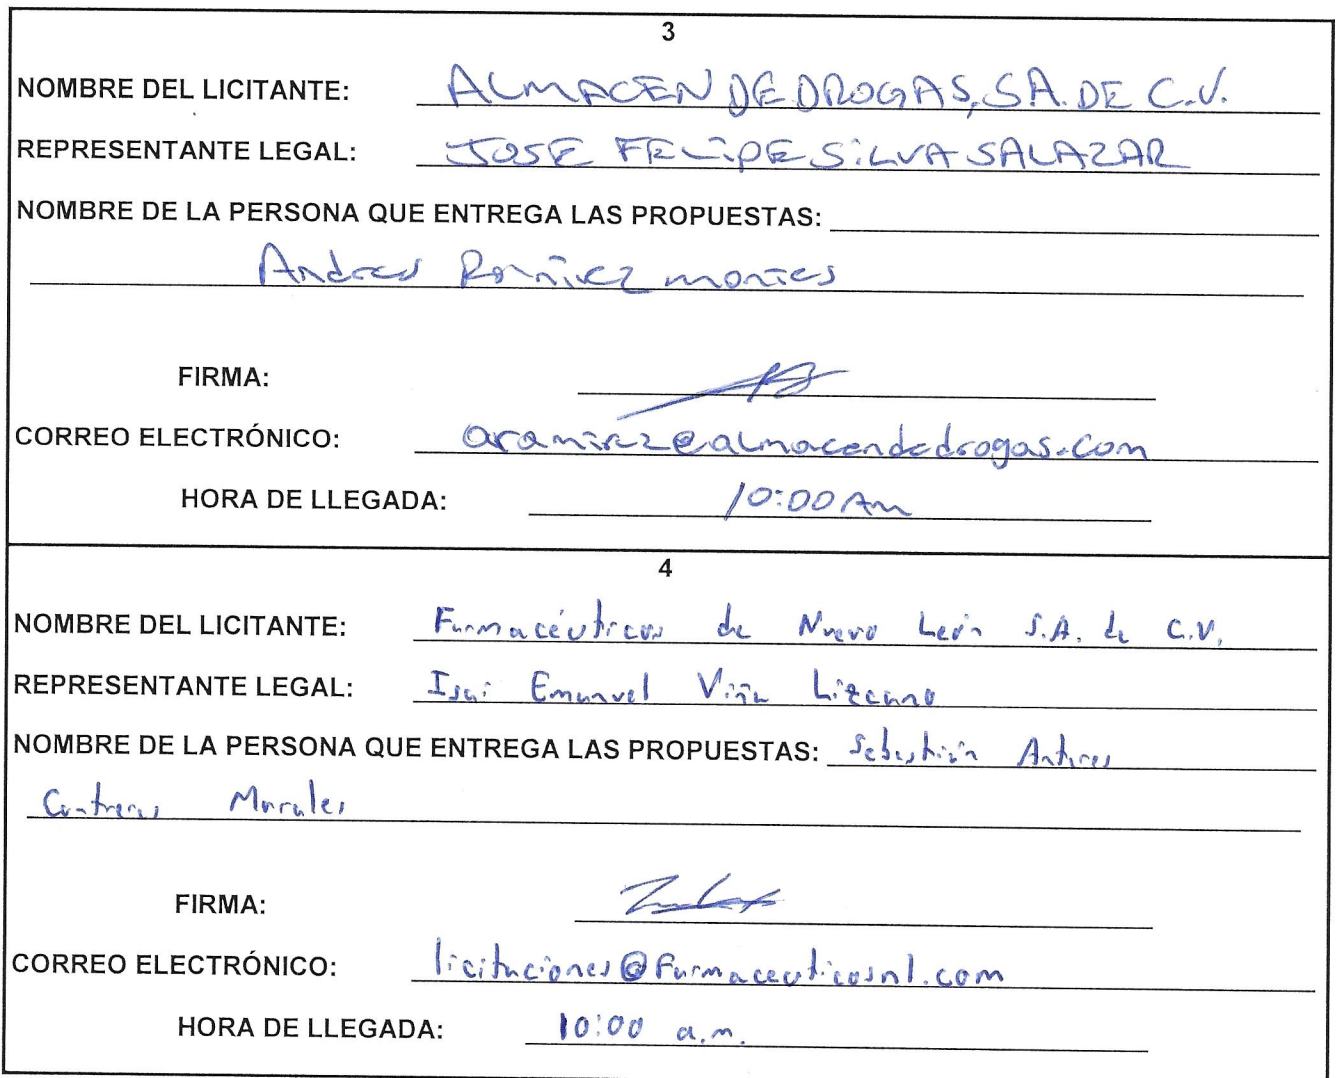 3
NOMBRE DEL LICITANTE: ALMACEN DE DROGAS, SA. DE C.V.
REPRESENTANTE LEGAL: JOSE FELIPE SILVA SALAZAR
NOMBRE DE LA PERSONA QUE ENTREGA LAS PROPUESTAS:
Andres Ramirez montes
FIRMA:
CORREO ELECTRÓNICO: aramirez@almacendedrogas.com
HORA DE LLEGADA: 10:00 Am
4
NOMBRE DEL LICITANTE: Farmacéuticos de Nuevo León S.A. de C.V.
REPRESENTANTE LEGAL: Isai Emanuel Viña Lizcano
NOMBRE DE LA PERSONA QUE ENTREGA LAS PROPUESTAS: Sebastián Antares
Contreras Morales
FIRMA:
CORREO ELECTRÓNICO: licitaciones@farmaceuticosnl.com
HORA DE LLEGADA: 10:00 a.m.